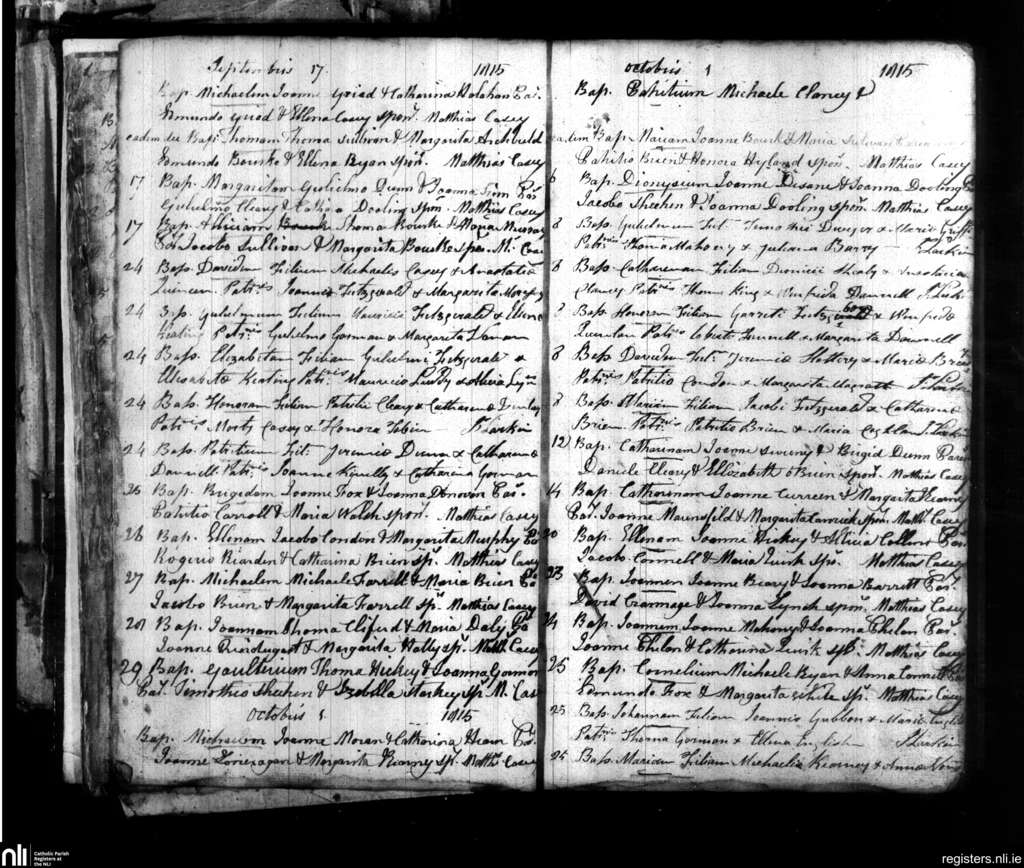 Septembris 17. 1815
Bap. Michaelem Joanne & Catharina Holohan Par.
Edmundo & Ellena Casey spon. Matthias Casey
eadem die Bap. Thomam Thoma Sullivan & Margarita Archbold
Edmundo Bourke & Ellena Ryan spon. Matthias Casey
17 Bap. Margaritam Gulielmo Dunn & Joanna Par.
Gulielmo Cleary & Dooling spon. Matthias Casey
17 Bap. Thoma Bourke & Maria Murray
Par. Jacobo Sullivan & Margarita Bourke spon. M. Casey
24 Bap. Davidem Filium Michaelis Casey & Anastatia
Patris Joannis Fitzgerald & Margarita
24 Bap. Gulielmum Filium Mauricii Fitzgerald & Ellena
Keating Patris Gulielmo Gorman & Margarita
24 Bap. Elizabetam Filiam Gulielmi Fitzgerald &
Elisabeta Keating Patris Mauricio Leddy & Alicia
24 Bap. Honoram Filiam Patritii Cleary & Catharena
Patris Morty Casey & Honora Tobin Larkin
24 Bap. Patritium Fil. Jeremie Dunn & Catharena
Patris Joanne & Catharina Gorman
25 Bap. Brigedam Joanne Fox & Joanna Donovan Par.
Patritio Carroll & Maria Walsh spon. Matthias Casey
26 Bap. Ellenam Jacobo Condon & Margarita Murphy Par.
Rogerio Riarden & Catharina Brien sp. Matthias Casey
27 Bap. Michaelem Michaele Farrell & Maria Brien Par.
Jacobo Brien & Margarita Farrell sp. Matthias Casey
28 Bap. Joannam Thoma Cliford & Maria Daly Par.
Joanne & Margarita sp. Matth. Casey
29 Bap. Gaulterium Thoma Hickey & Joanna Gorman
Par. Timotheo Sheehen & Isabella sp. M. Casey
Octobris 1 1815
Bap. Joanne Moran & Catharina Par.
Joanne Loneragan & Margarita Kearny sp. Matths Casey
Octobris 1 1815
Bap. Patritium Michaele Clancy &
eadem Bap. Mariam Joanne Bourk & Maria Sulivan
Patritio Brien & Honora Hyland spon. Matthias Casey
6 Bap. Dionysium Joanne & Joanna Dooling Par.
Jacobo Sheehen & Joanna Dooling spon. Matthias Casey
8 Bap. Gulielmum Fil. Timothei Dwyer & Maria
Patris Thoma Mahony & Juliana Barry Larkin
8 Bap. Catharenam Filiam Dionicii &
Clancy Patris Thoma King & Winfrida
8 Bap. Honoram Filiam Garreti & Winfreda
Quinlan Patris & Margareta
8 Bap. Davidem Fil. Jeremie & Maria
Patris Patritio Condon & Margarita Magrath
8 Bap. Mariam Filiam Jacobi Fitzgerald & Catharena
Brien Patris Patritio Brien & Maria J. Larkin
12 Bap. Catharinam Joanne Sweeny & Brigid Dunn
Daniele Cleary & Ellizabeth O Brien spon. Matthias Casey
14 Bap. Catharinam Joanne Curreen & Margarita Kearny
Par. Joanne Maunsfild & Margarita spon. Matth. Casey
20 Bap. Ellenam Joanne Hickey & Alicia Par.
Jacobo Connell & Maria Quirk Sps. Matthias Casey
23 Bap. Joannem Joanne Beary & Joanna Barrett Par.
David & Joanna Lynch spon. Matthias Casey
24 Bap. Joannem Joanne Mahony & Joanna Phelan Par.
Joanne Phelan & Catharina Quirk sp. Matthias Casey
25 Bap. Cornelium Michaele Ryan & Anna Connell
Edmundo Fox & Margarita White sp. Matthias Casey
25 Bap. Johannam Filiam Joannis Gubbon & Maria English
Patris Thoma Gorman & Ellena English Larkin
25 Bap. Mariam Filiam Michaelis Kearney & Anna
nli
Catholic Parish
Registers at
the NLI
registers.nli.ie